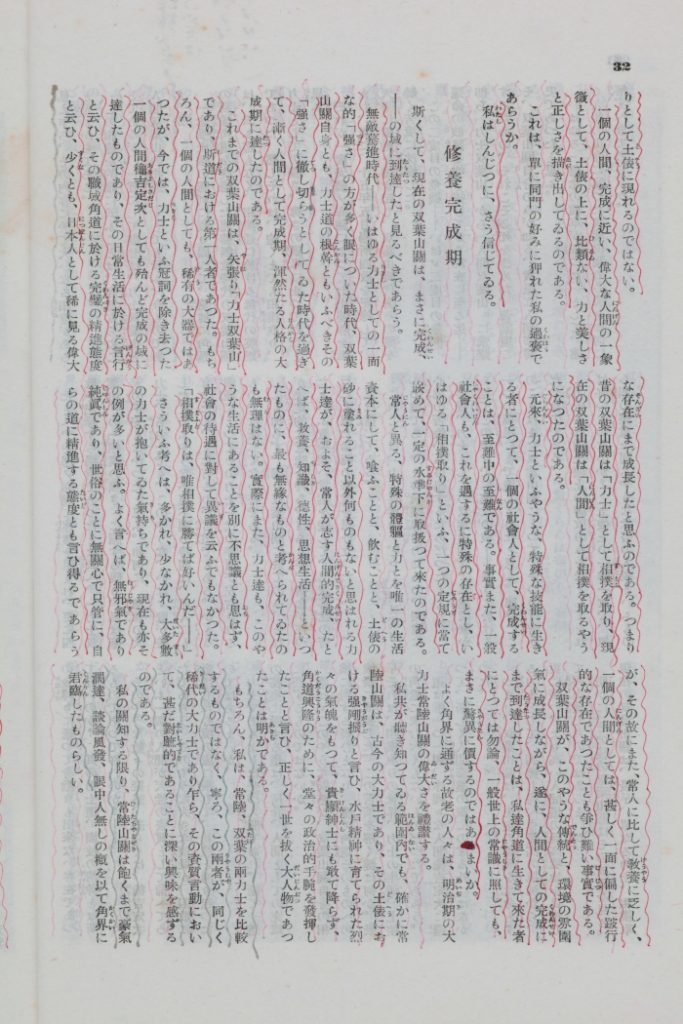 32
りとして土俵に現れるのではない。
一個の人間、完成に近い、偉大な人間の一象
徴として、土俵の上に、比類ない、力と美しさ
と正しさを描き出してゐるのである。
これは、單に同門の好みに狎れた私の過褒で
あらうか。
私はしんじつに、さう信じてゐる。
修養完成期
斯くして、現在の双葉山關は、まさに完成、
――の域に到達したと見るべきであらう。
無敵驀進時代――いはゆる力士としての一面
な的「强さ」の方が多く眼についた時代、双葉
山關自身とも、力士道の根幹ともいふべきその
「强さ」に徹し切らうとしてゐた時代を過ぎ
て、漸く人間として完成期、渾然たる人格の大
成期に達したのである。
これまでの双葉山關は、矢張り「力士双葉山」
であり、斯道における第一人者であつた。もち
ろん、一個の人間としても、稀有の大器ではあ
つたが、今では、力士といふ冠詞を除き去つた
一個の人間穐吉定次としても殆んど完成の域に
達したものであり、その日常生活に於ける言行
と云ひ、その職域角道に於ける完璧の精進態度
と云ひ、少くとも、日本人として稀に見る偉大
な存在にまで成長したと思ふのである。つまり
昔の双葉山關は「力士」として相撲を取り、現
在の双葉山關は「人間」として相撲を取るやう
になつたのである。
元來、力士といふやうな、特殊な技能に生き
る者にとつて、一個の社會人として、完成する
ことは、至難中の至難である。事實また、一般
社會人も、これを遇するに特殊の存在とし、い
はゆる「相撲取り」といふ、一つの定規に當て
嵌めて、一定の水準下に取扱つて來たのである。
常人と異る、特殊の體軀と力とを唯一の生活
資本にして、喰ふことと、飮むことと、土俵の
砂に塗れること以外何ものもないと思はれる力
士達が、およそ、常人が志す人間的完成、たと
へば、敎養、知識、德性、思想生活――といつ
たものに、最も無緣なものと考へられてゐたの
も無理はない。實際にまた、力士達も、このや
うな生活にあることを別に不思議とも思はず、
社會の待遇に對して異議を云ふでもなかつた。
「相撲取りは、唯相撲に勝てば好いんだ――」
さういふ考へは、多かれ、少なかれ、大多數
の力士が抱いてゐた氣持ちであり、現在も亦そ
の例が多いと思ふ。よく言へば、無邪氣であり
純眞であり、世俗のことに無關心で只管に、自
らの道に精進する態度とも言ひ得るであらう
が、その故にまた、常人に比して敎養に乏しく、
一個の人間としては、甚しく一面に偏した跛行
的な存在であつたことも爭ひ難い事實である。
双葉山關が、このやうな傳統と、環境の雰圍
氣に成長しながら、遂に、人間としての完成に
まで到達したことは、私達角道に生きて來た者
にとつては勿論、一般世上の常識に照しても、
まさに驚異に價するのではあるまいか。
よく角界に通ずる故老の人々は、明治期の大
力士常陸山關の偉大さを禮讃する。
私共が聽き知つてゐる範圍內でも、確かに常
陸山關は、古今の大力士であり、その土俵にお
ける强剛振りと言ひ、水戶精神に育てられた烈
々の氣魄をもつて、貴顯紳士にも敢て降らず、
角道興隆のために、堂々の政治的手腕を發揮し
たことと言ひ、正しく一世を拔く大人物であつ
たことは明かである。
もちろん、私は、常陸、双葉の兩力士を比較
するものではなく、寧ろ、この兩者が、同じく
稀代の大力士であり乍ら、その資質言動におい
て、甚だ對蹠的であることに深い興味を感ずる
のである。
私の關知する限り、常陸山關は飽くまで豪氣
濶達、談論風發、眼中人無しの槪を以て角界に
君臨したものらしい。